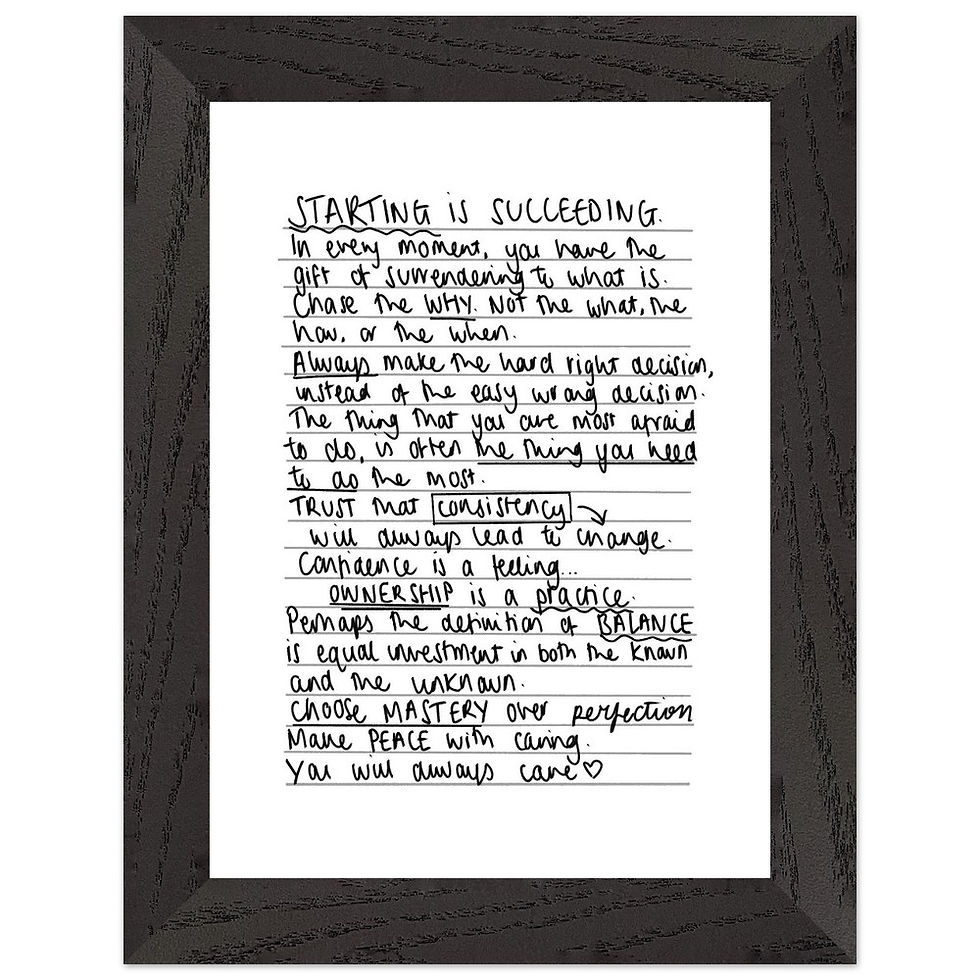 STARTING is SUCCEEDING.
In every moment, you have the
gift of surrendering to what is.
Chase the WHY. Not the what, the
how, or the when.
Always make the hard right decision,
instead of the easy wrong decision.
The thing that you are most afraid
to do, is often the thing you need
to do the most.
TRUST that consistency
will always lead to change.
Confidence is a feeling...
OWNERSHIP is a practice.
Perhaps the definition of BALANCE
is equal investment in both the known
and the unknown.
Choose MASTERY over perfection
Make PEACE with caring.
You will always care♡